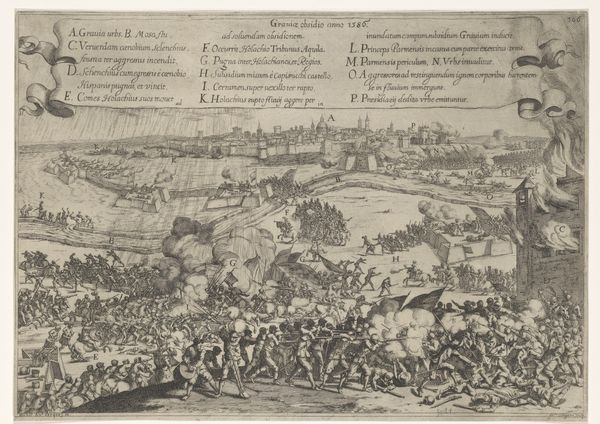 Graviæ obsidio anno 1586.
306
A. Gravia urbs. B. Mosa flu.
C. Veruendam cænobium Schenchius
ter aggressus incendit.
D. Schenchius cum egressis e cænobio
Hispanis pugnat, et vincit.
E. Comes Holachius suos monet
ad
ad soluendam obsidionem.
F. Occurrit Holachio Tribunus Aquila.
G. Pugna inter Holachianos, et Regios.
H. Subsidium missum è Capizucchi castello.
I. Certamen super vexillo ter rapto.
K. Holachius rupto fluuij aggere per
in
inundatum campum subsidium Grauiam inducit.
L. Princeps Parmensis in cum parte exercitus venit.
M. Parmensis periculum. N. Vrbs inuaditur.
O. Aggressores ad restinguendum ignem corporibus hærentem
se in fluuium immergunt.
P. Præsidiarij dedita Vrbe emittuntur.
A
P
K
H
O
C
F
H
B
G
E